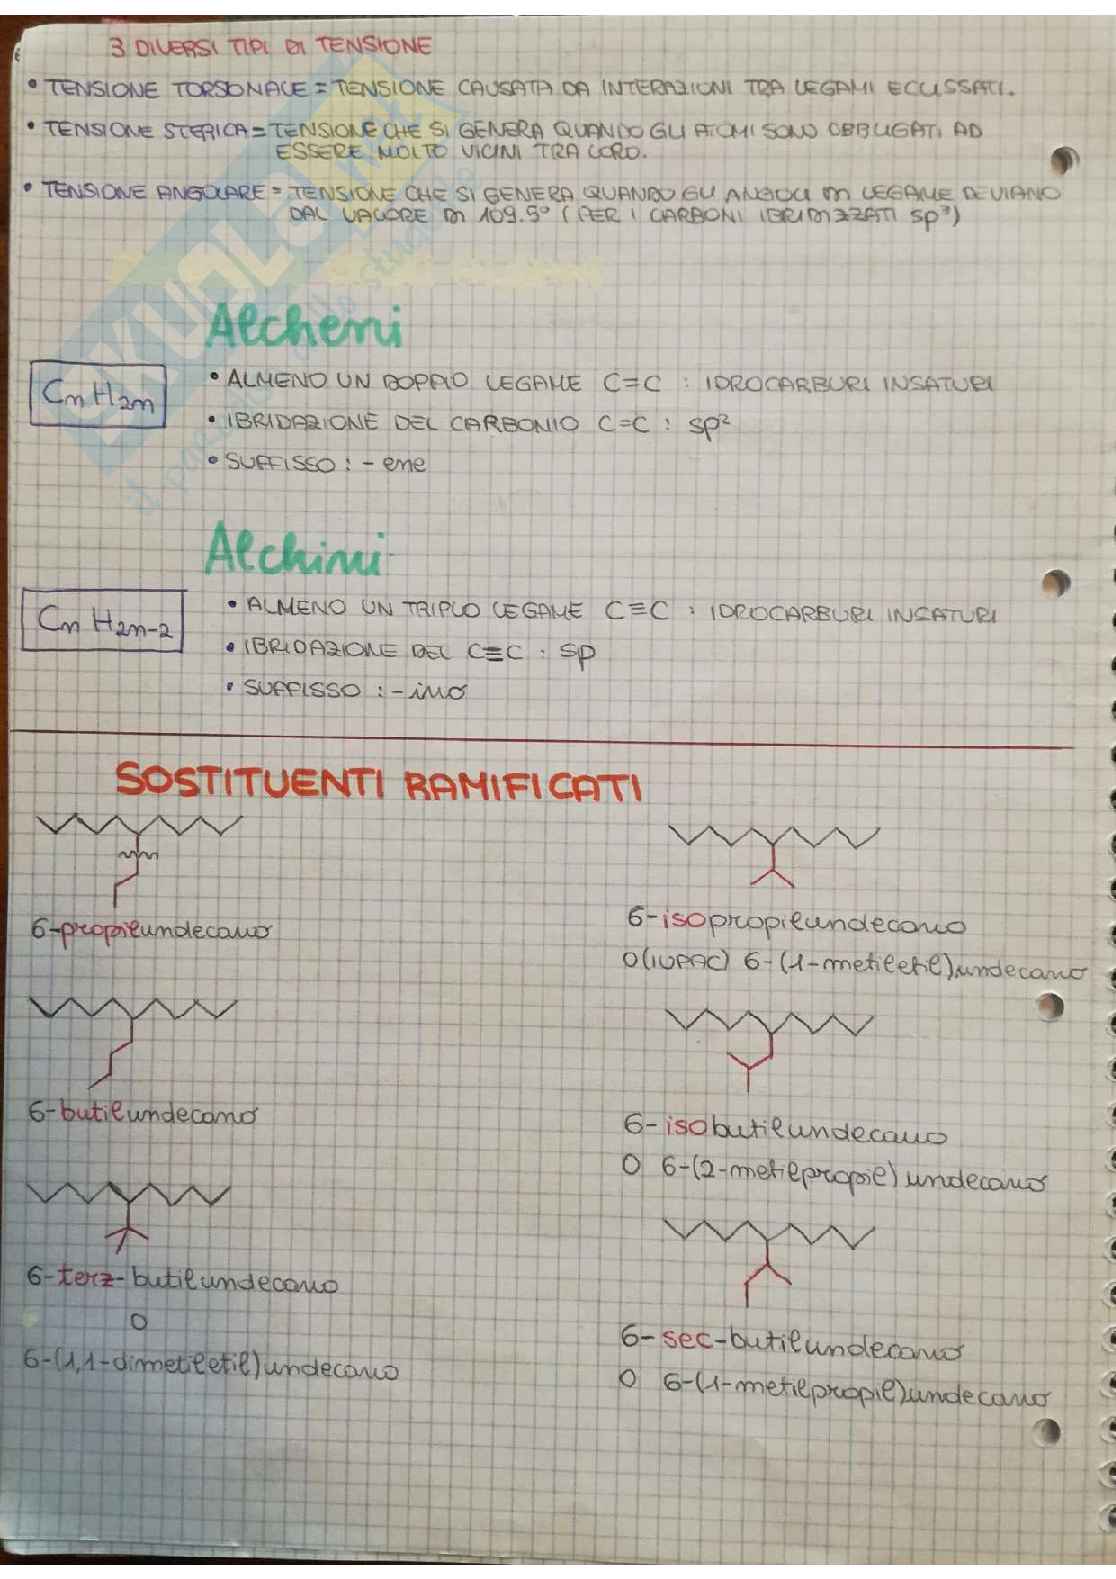 3 DIVERSI TIPI DI TENSIONE
• TENSIONE TORSONALE = TENSIONE CAUSATA DA INTERAZIONI TRA LEGAMI ECLISSATI.
• TENSIONE STERICA = TENSIONE CHE SI GENERA QUANDO GLI ATOMI SONO OBBLIGATI AD
ESSERE MOLTO VICINI TRA LORO.
• TENSIONE ANGOLARE = TENSIONE CHE SI GENERA QUANDO GLI ANGOLI DI LEGAME DEVIANO
DAL VALORE DI 109.5° (PER I CARBONI IBRIDIZZATI sp³)
Alcheni
CnH2n
• ALMENO UN DOPPIO LEGAME C=C : IDROCARBURI INSATURI
• IBRIDAZIONE DEL CARBONIO C=C : sp²
• SUFFISSO : -ene
Alchini
Cn H2n-2
• ALMENO UN TRIPLO LEGAME C≡C : IDROCARBURI INSATURI
• IBRIDAZIONE DEL C≡C : sp
• SUFFISSO : -ino
SOSTITUENTI RAMIFICATI
6-propilundecano
6-isopropilundecano
O (IUPAC) 6-(1-metiletil)undecano
6-butilundecano
6-isobutilundecano
O 6-(2-metilpropil)undecano
6-terz-butilundecano
O
6-(1,1-dimetiletil)undecano
6-sec-butilundecano
O 6-(1-metilpropil)undecano